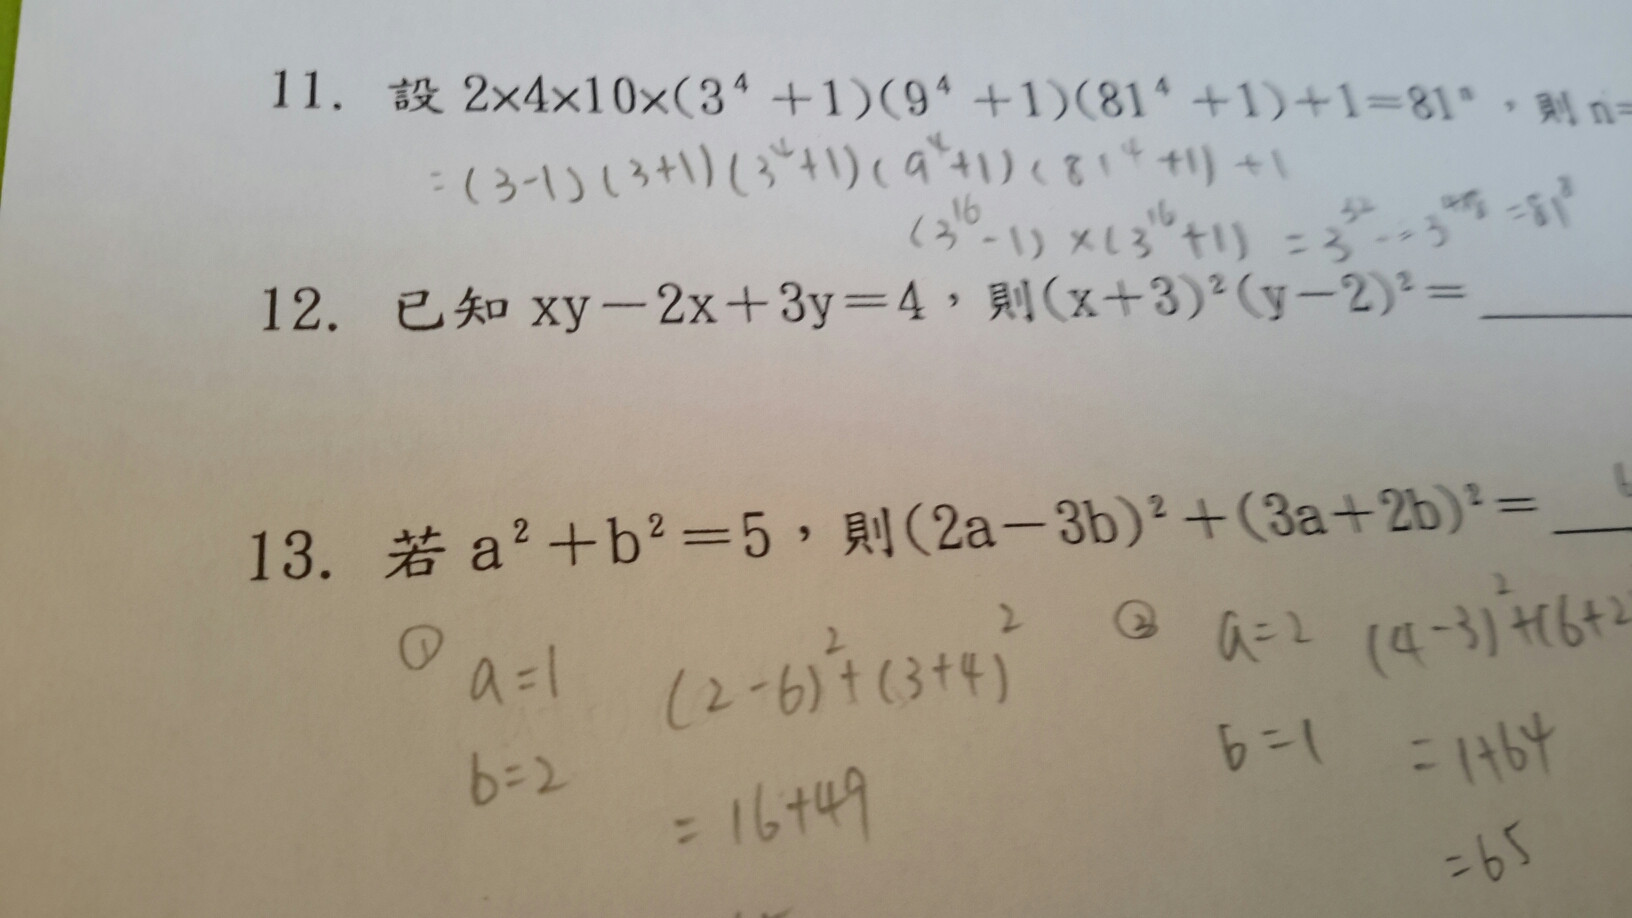 11. 設 2×4×10×(3⁴+1)(9⁴+1)(81⁴+1)+1=81ⁿ，則 n=
=(3-1)(3+1)(3⁴+1)(9⁴+1)(81⁴+1)+1
(3¹⁶-1)×(3¹⁶+1) =3³² =81⁸
12. 已知 xy－2x＋3y＝4，則(x＋3)²(y－2)²＝
13. 若 a²＋b²＝5，則(2a－3b)²＋(3a＋2b)²＝
① a=1 (2-6)²+(3+4)² ② a=2 (4-3)²+(6+2
b=2 =16+49 b=1 =1+64
=65